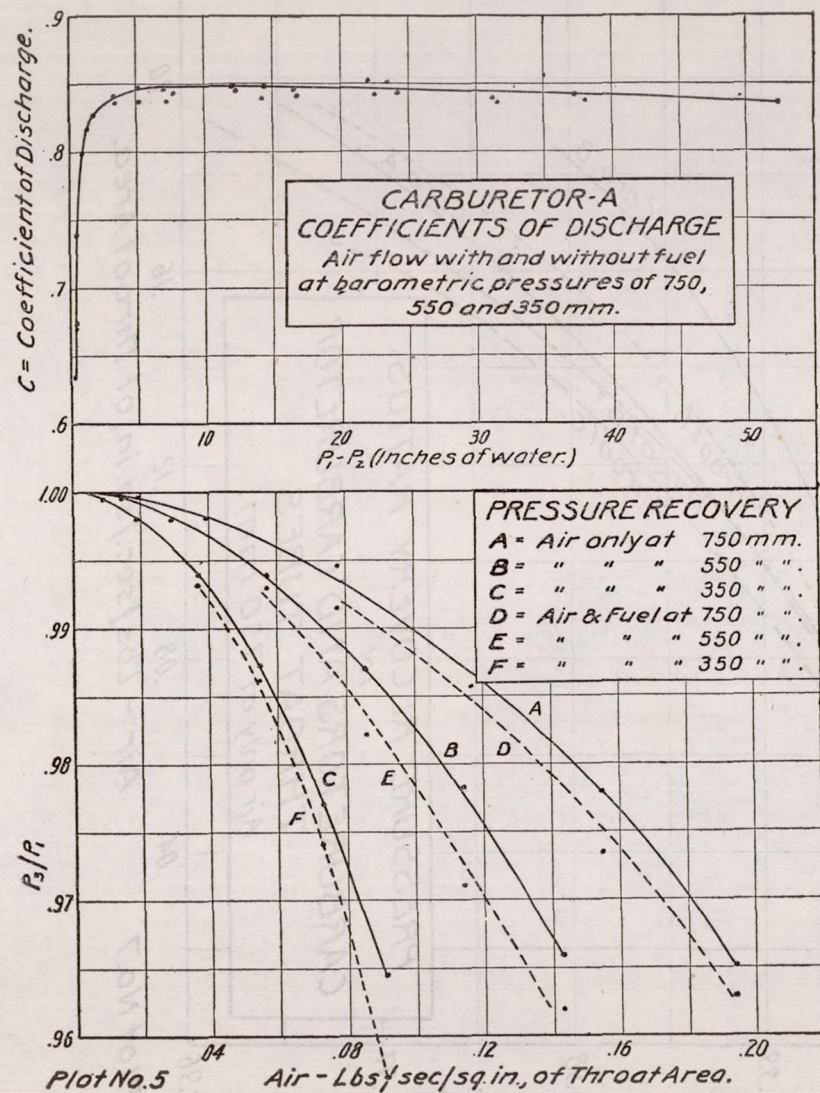 .9
.8
.7
.6
C = Coefficient of Discharge.
CARBURETOR-A
COEFFICIENTS OF DISCHARGE
Air flow with and without fuel
at barometric pressures of 750,
550 and 350 mm.
10 20 30 40 50
P₁-P₂ (Inches of water.)
1.00
.99
.98
.97
.96
P₃/P₁
PRESSURE RECOVERY
A = Air only at 750 mm.
B = " " " 550 " ".
C = " " " 350 " ".
D = Air & Fuel at 750 " ".
E = " " " 550 " ".
F = " " " 350 " ".
A
B
D
C
E
F
.04 .08 .12 .16 .20
Plot No. 5 Air - Lbs/sec/sq. in., of Throat Area.